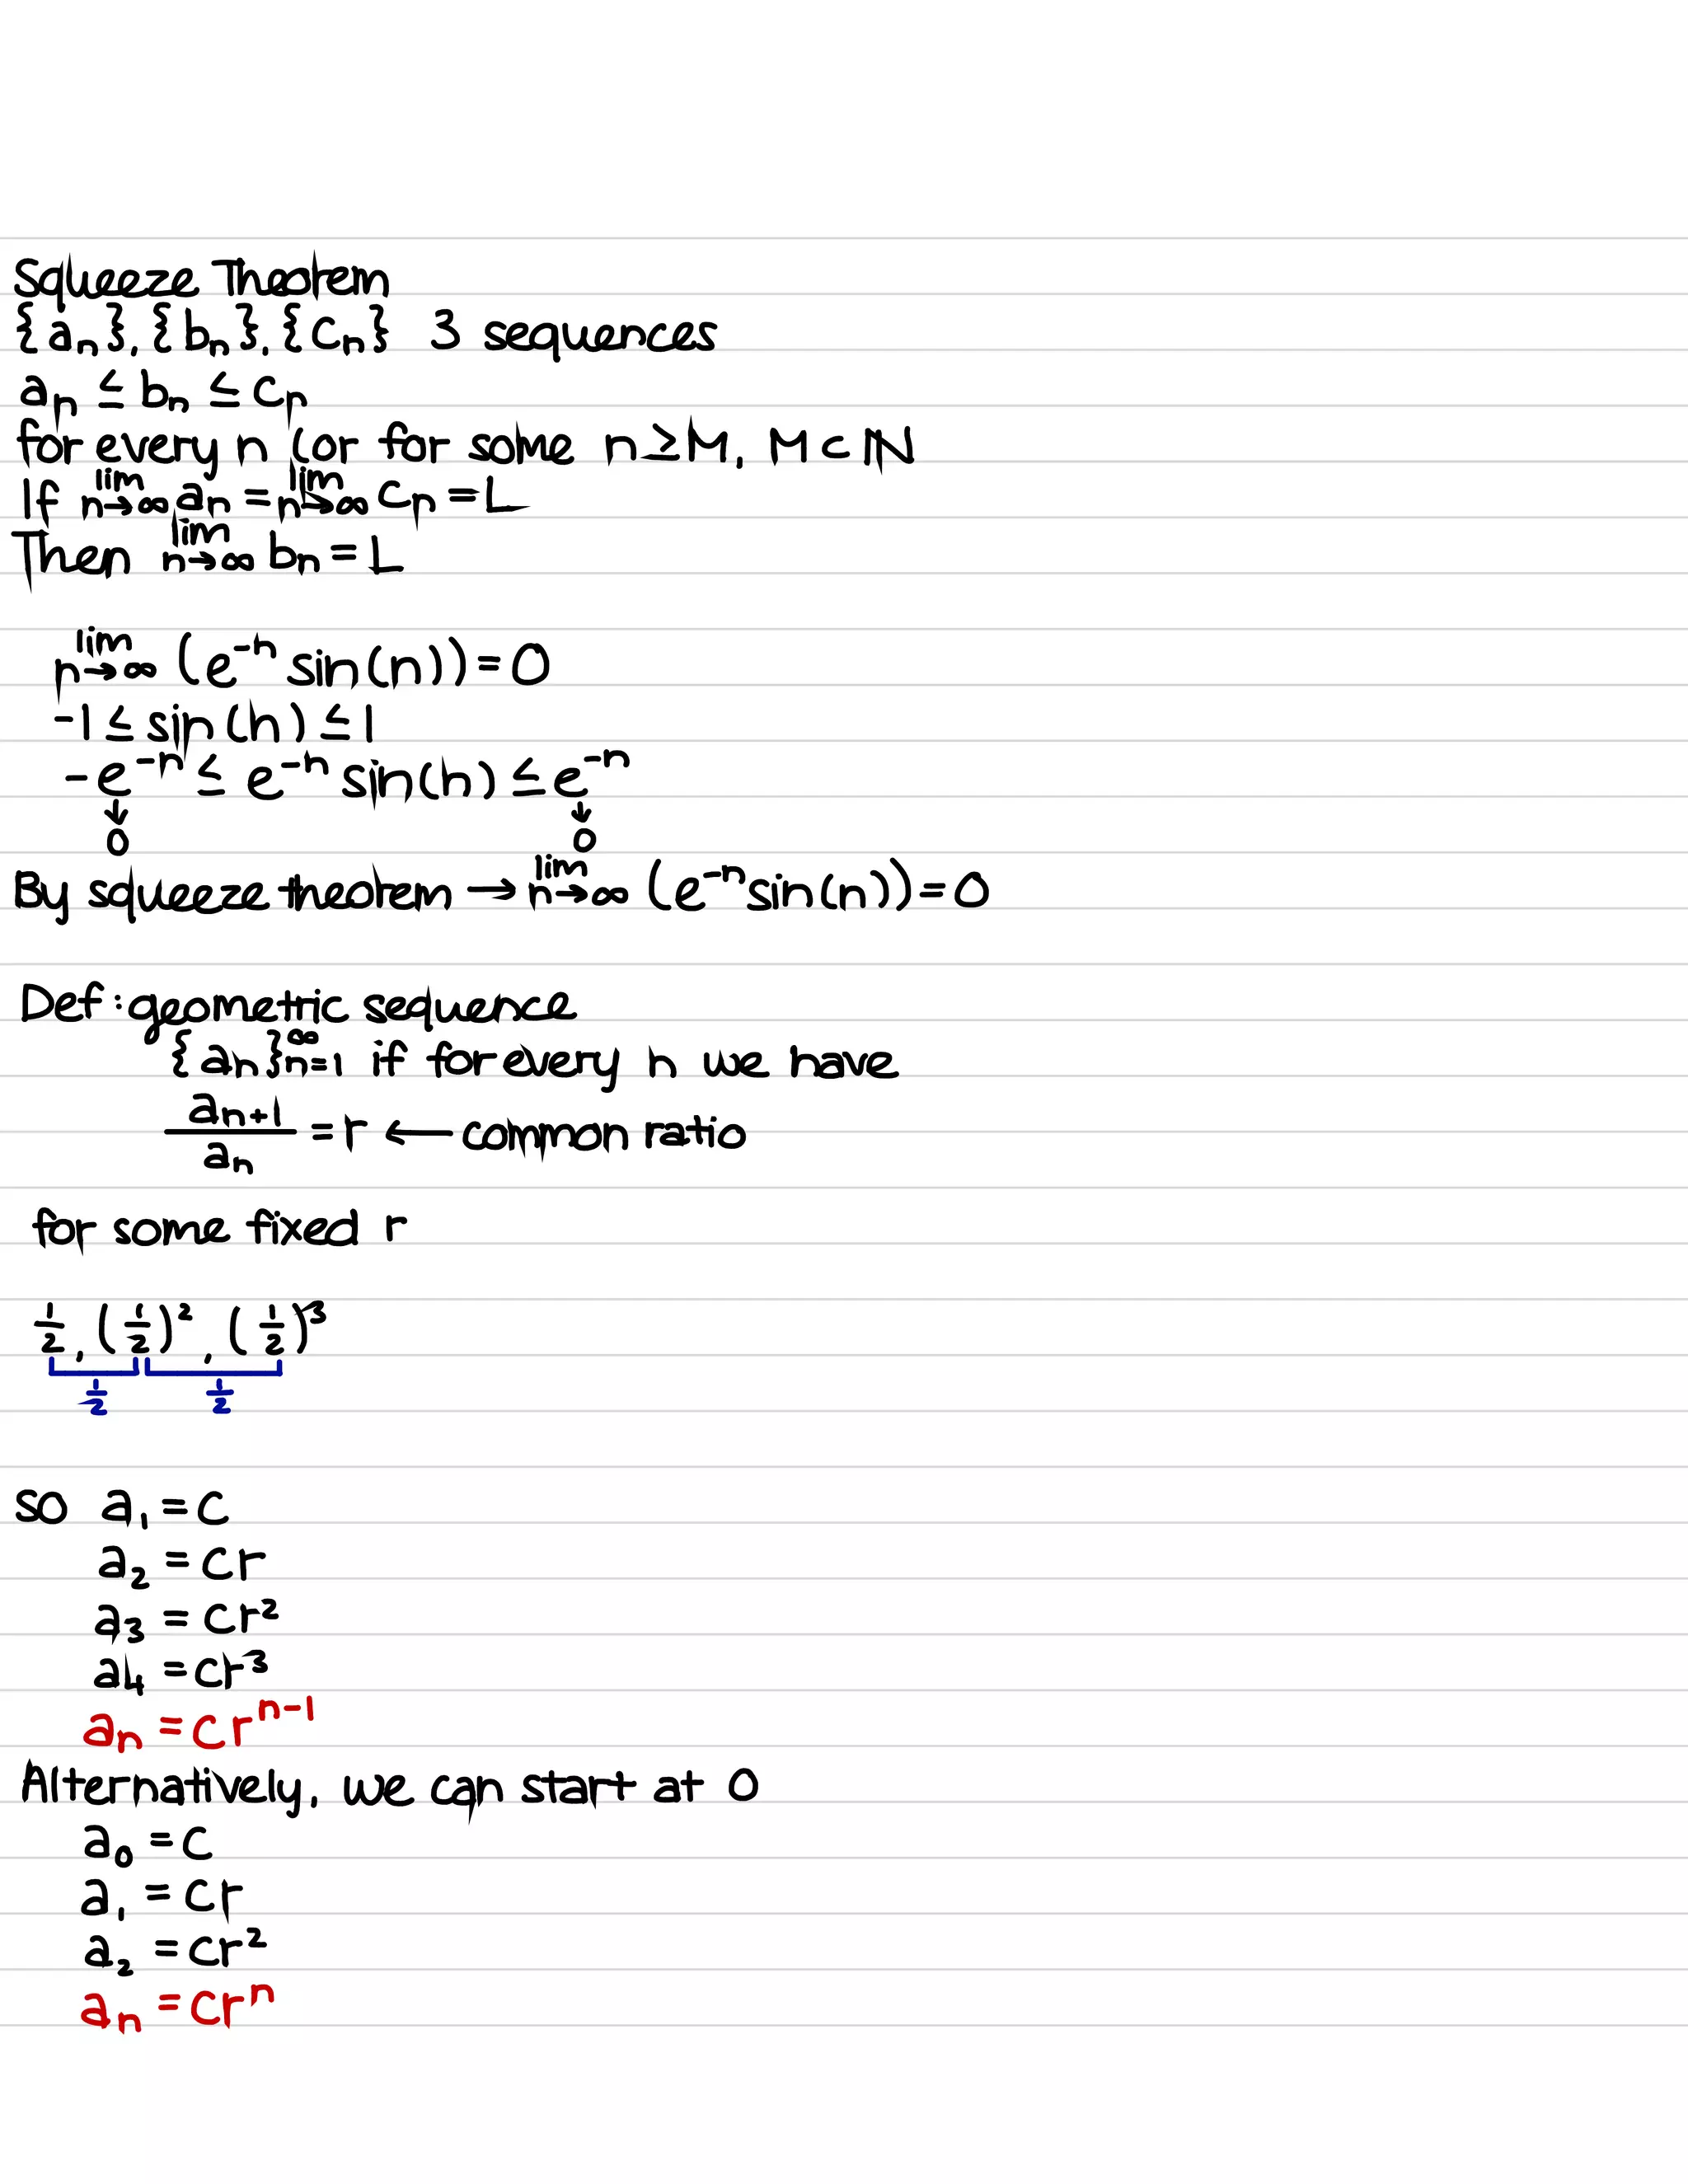 Squeeze Theorem
{aₙ}, {bₙ}, {cₙ} 3 sequences
aₙ ≤ bₙ ≤ cₙ
for every n (or for some n ≥ M, M ⊂ ℕ
If lim n→∞ aₙ = lim n→∞ cₙ = L
Then lim n→∞ bₙ = L
lim n→∞ (e⁻ⁿ sin(n)) = 0
-1 ≤ sin(n) ≤ 1
-e⁻ⁿ ≤ e⁻ⁿ sin(n) ≤ e⁻ⁿ
↓ ↓
0 0
By squeeze theorem → lim n→∞ (e⁻ⁿ sin(n)) = 0
Def: geometric sequence
{aₙ}^∞ₙ₌₁ if for every n we have
aₙ₊₁/aₙ = r ← common ratio
for some fixed r
1/2, (1/2)², (1/2)³
1/2 1/2
so a₁ = c
a₂ = cr
a₃ = cr²
a₄ = cr³
aₙ = crⁿ⁻¹
Alternatively, we can start at 0
a₀ = c
a₁ = cr
a₂ = cr²
aₙ = crⁿ